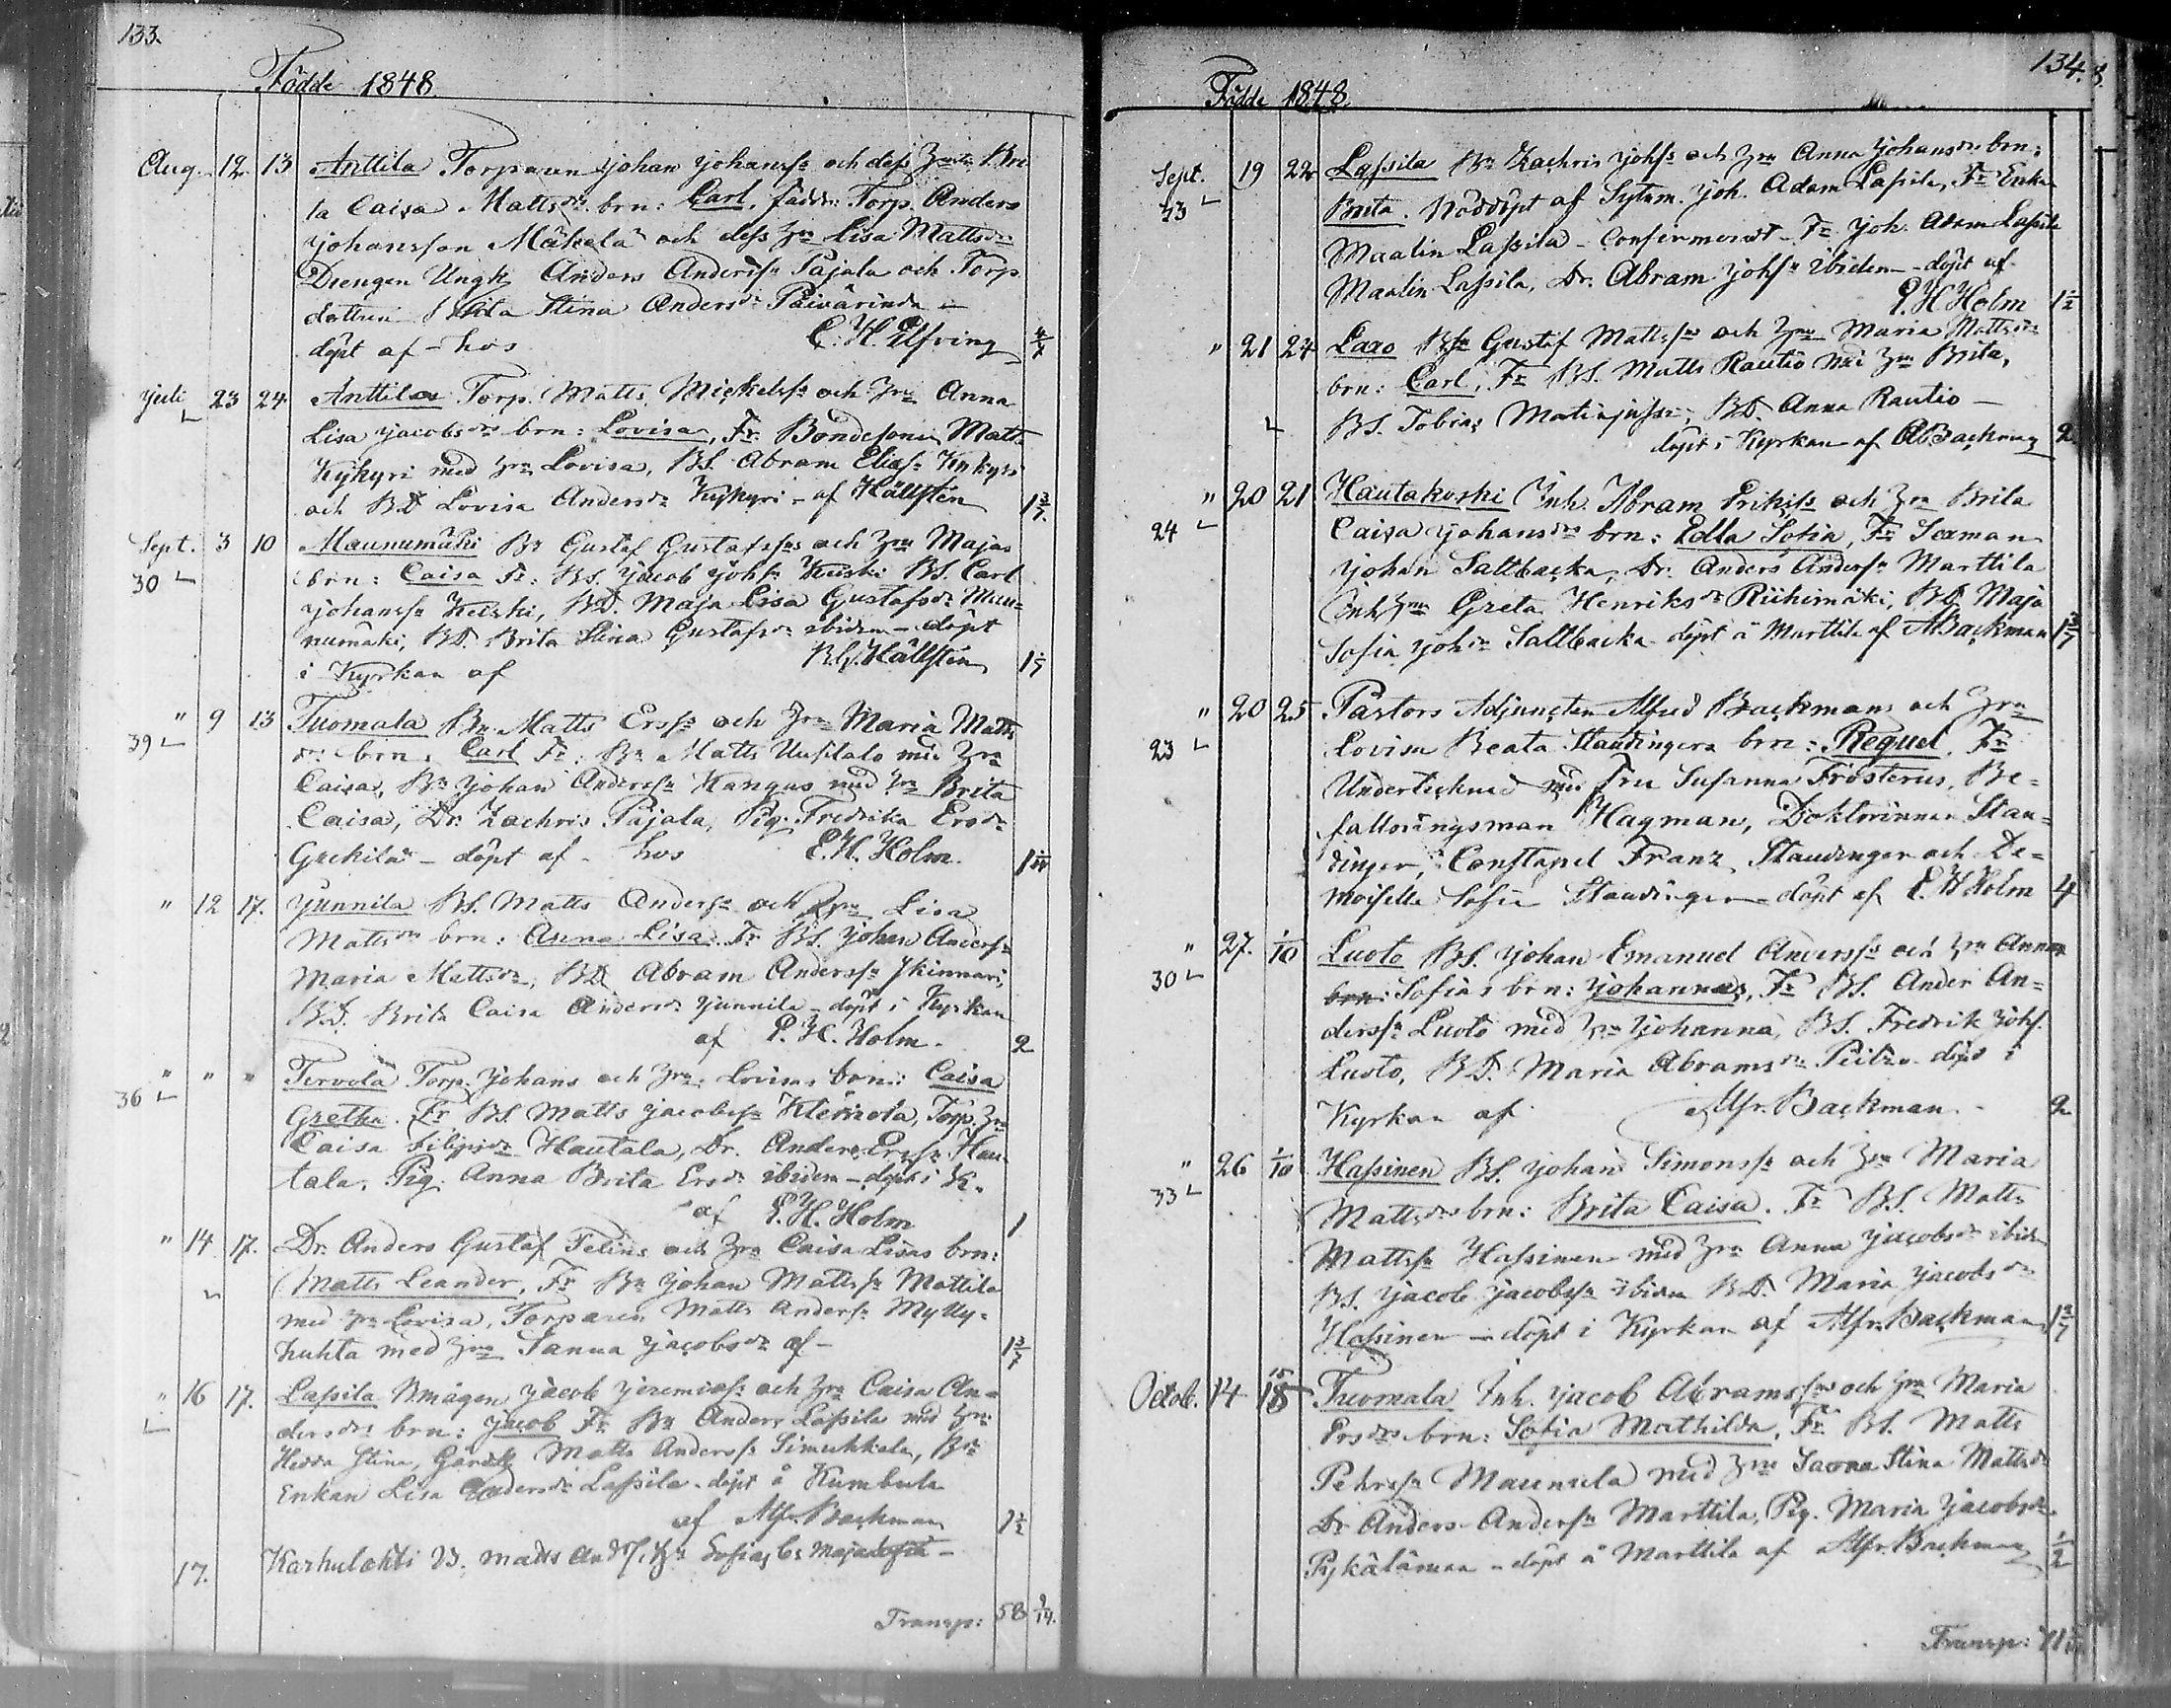 133.
Födde 1848.
Aug. 12. 13 Anttila Torparen Johan Johanss: och dess Hru Bri
ta Caisa Mattsdr brn: Carl. Faddr: Torp. Anders
Johansson Mäkelä och dess Hru Lisa Mattsdr
Drengen Ungk. Anders Anderss: Pajala och Torp.
dottren Stina Andersdr Päivärinda –
döpt af – hos C. H. Elfving 4/7
Juli 23 24 Anttila Torp. Matts Mickelss: och Hru Anna
Lisa Jacobsdrs brn: Lovisa, Fr. Bondesonen Matts
Kykyri med Hru Lovisa, BS. Abram Eliass: Kykyri
och BD Lovisa Andersdr Kykyri – af Hällsten 1 3/7.
Sept. 3 10 Maunumäki Bn Gustaf Gustafssons och Hru Majas
30 brn: Caisa Fr: BS. Jacob Johss: Keiski BS. Carl
Johanss: Keiski, BD. Maja Lisa Gustafsdr Mau=
numäki, BD. Brita Stina Gustafsdr ibidem – döpt
i Kyrkan af Hällsten
" 9 13 Tuomala Bn Matts Ersss: och Hru Maria Matts
39 dr brn: Carl Fr: Bn Matts Uusitalo med Hru
Caisa, Bn Johan Anderss: Kangas med Hru Brita
Caisa, Dr. Zachris Pajala, Pig. Fredrika Ersdr
– döpt af – hos E. H. Holm.
" 12 17. Junnila BS. Matts Anderss: och Hru Lisa
Mattsdrs brn: Anna Lisa. Fr BS. Johan Anderss:
Maria Mattsdr, BD Abram Anderss: Skinnari,
BD. Brita Caisa Andersdr Junnila – döpt i Kyrkan
af E. H. Holm. 2
" " " Tervola Torp. Johans och Hru Lovisas brn: Caisa
36 Gretha. Fr BS. Matts Jacobss: Klemola, Torp. Hru
Caisa Filipsdr Hautala, Dr. Anders Erss: Hau
tala, Pig. Anna Brita Ersdr ibidem – döpt i K.
af E. H. Holm 1
" 14 17. Dr. Anders Gustaf Felins och Hru Caisa Lisas brn:
Matts Leander, Fr Bn Johan Mattss: Mattila
med Hru Lovisa, Torparen Matts Anderss: Mylly=
huhta med Hru Sanna Jacobsdr af – 1 3/7
" 16 17. Lassila Bmågen Jacob Jeremiass: och Hru Caisa An=
dersdrs brn: Jacob Fr Bn Anders Lassila med Hru
Hedda Stina, Matts Anderss: Simukkala, Bde
Enkan Lisa Andersdr Lassila – döpt å Kumbula
af Alfr. Backman 1 1/2
17. Karhulahti B. Matts And. Sofias b: Maja Sofia –
Transp: 58 9/14.
134.
Födde 1848.
Sept. 19 22 Lassila Bn Zachris Johss: och Hru Anna Johansdrs brn:
Brita. Nöddöpt af Sytnm. Joh. Adam Lassila, Fr Enka
Maalin Lassila – Confirmerat – Fr Joh. Adam Lassila
Maalin Lassila, Dr. Abram Johss: ibidem – döpt af
E. H Holm 1 1/2
" 21 24 Laxo Bn Gustaf Mattssons och Hru Maria Mattsdrs
brn: Carl, Fr BS. Matts Rautio med Hru Brita,
BS. Tobias Matinjussi, BD. Anna Rautio –
döpt i Kyrkan af ABackman 2
" 20 21 Hautakoski Inh. Abram Erikss: och Hru Brita
24 Caisa Johansdrs brn: Edla Sofia, Fr Sexman
Johan Saltbacka, Dr. Anders Anderss: Marttila
Inh. Hru Greta Henriksdr Riihimäki, BD. Maja
Sofia Johsdr Saltbacka – döpt å Marttila af ABackman 1 3/7
" 20 25 Pastors Adjuncten Alfred Backmans och Hru
23 Lovisa Beata Staudingers brn: Requel. Fr
Undertecknad med Fru Susanna Frosterus, Be=
fallningsman Hagman, Doktorinnan Stau=
dinger, Constapel Franz Staudinger och De=
moiselle Sofie Staudinger – döpt af E. H Holm 4
" 27. 1/10 Luoto BS. Johan Emanuel Anderss: och Hru Anna
30 brn: Sofias brn: Johannes, Fr BS. Anders An=
derss: Luoto med Hru Johanna, BS. Fredrik Johs.
Luoto, BD. Maria Abramsdr – döpt i
Kyrkan af Alfr. Backman. 2
" 26 1/10 Hassinen BS. Johan Simonss: och Hru Maria
33 Mattsdrs brn: Brita Caisa. Fr BS. Matts
Mattss: Hassinen med Hru Anna Jacobsdr ibidem
BS. Jacob Jacobss: ibidem BD. Maria Jacobsdr
Hassinen – döpt i Kyrkan af Alfr. Backman 1 3/7
Octob. 14 15 Tuomala Inh. Jacob Abramssons och Hru Maria
Ersdrs brn: Sofia Mathilda, Fr BS. Matts
Pehrss: Maunula med Hru Sanna Stina Mattsdr
Dr Anders Anderss: Marttila, Pig. Maria Jacobsdr
– döpt å Marttila af Alfr. Backman 1/2
Transp: 71